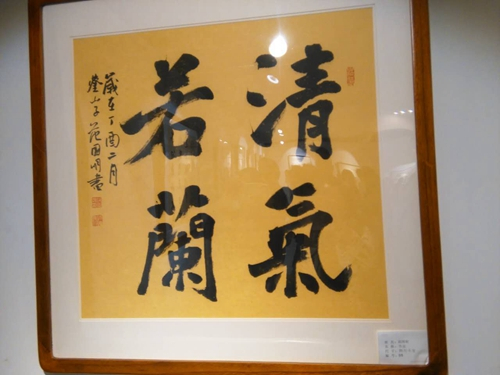 清氣
若蘭
歲在丁酉二月
瑩山子范國明書